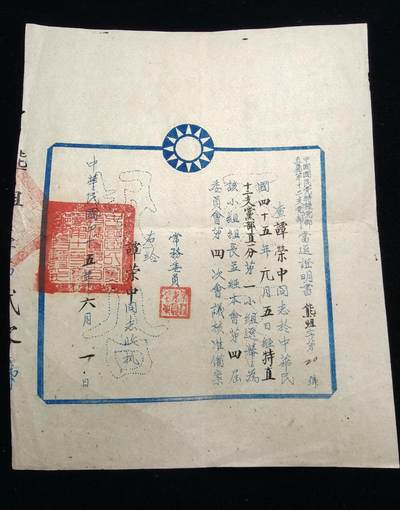 中國國民黨
直屬第十二支黨部
當選證明書 組字第20號
查譚榮中同志於中華民
國四十五年元月五日經特直
十二支黨部直分第一小組選舉為
該小組組長並經本會第四屆
委員會第四次會議核准備案
常務委員
右給
譚榮中同志收執
中華民國四十五年六月一日